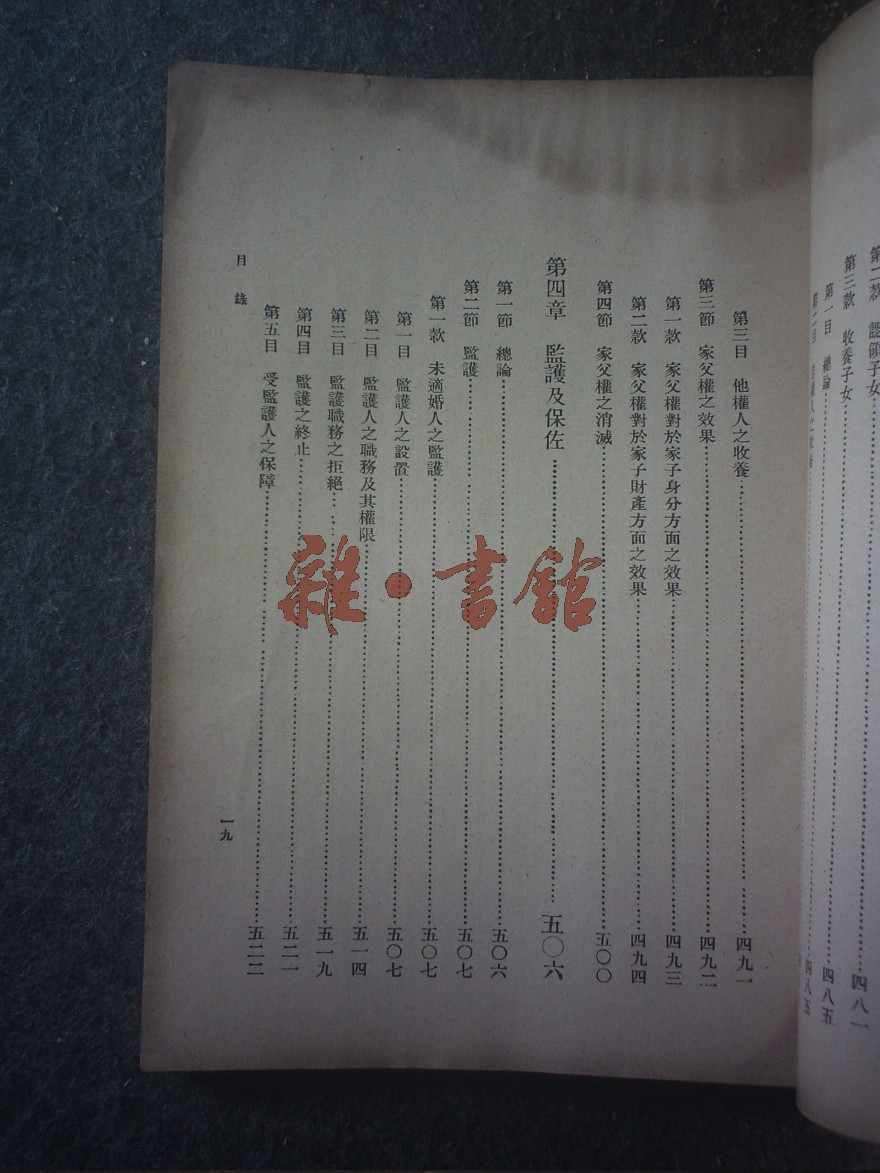 第二款 認領子女
第三款 收養子女……四八一
第一目 總論……四八五
第二目 自權人之收養……四八五
第三目 他權人之收養……四九一
第三節 家父權之效果……四九二
第一款 家父權對於家子身分方面之效果……四九三
第二款 家父權對於家子財產方面之效果……四九四
第四節 家父權之消滅……五〇〇
第四章 監護及保佐……五〇六
第一節 總論……五〇六
第二節 監護……五〇七
第一款 未適婚人之監護……五〇七
第一目 監護人之設置……五〇七
第二目 監護人之職務及其權限……五一四
第三目 監護職務之拒絕……五一九
第四目 監護之終止……五二一
第五目 受監護人之保障……五二二
目錄
一九
雜·書館